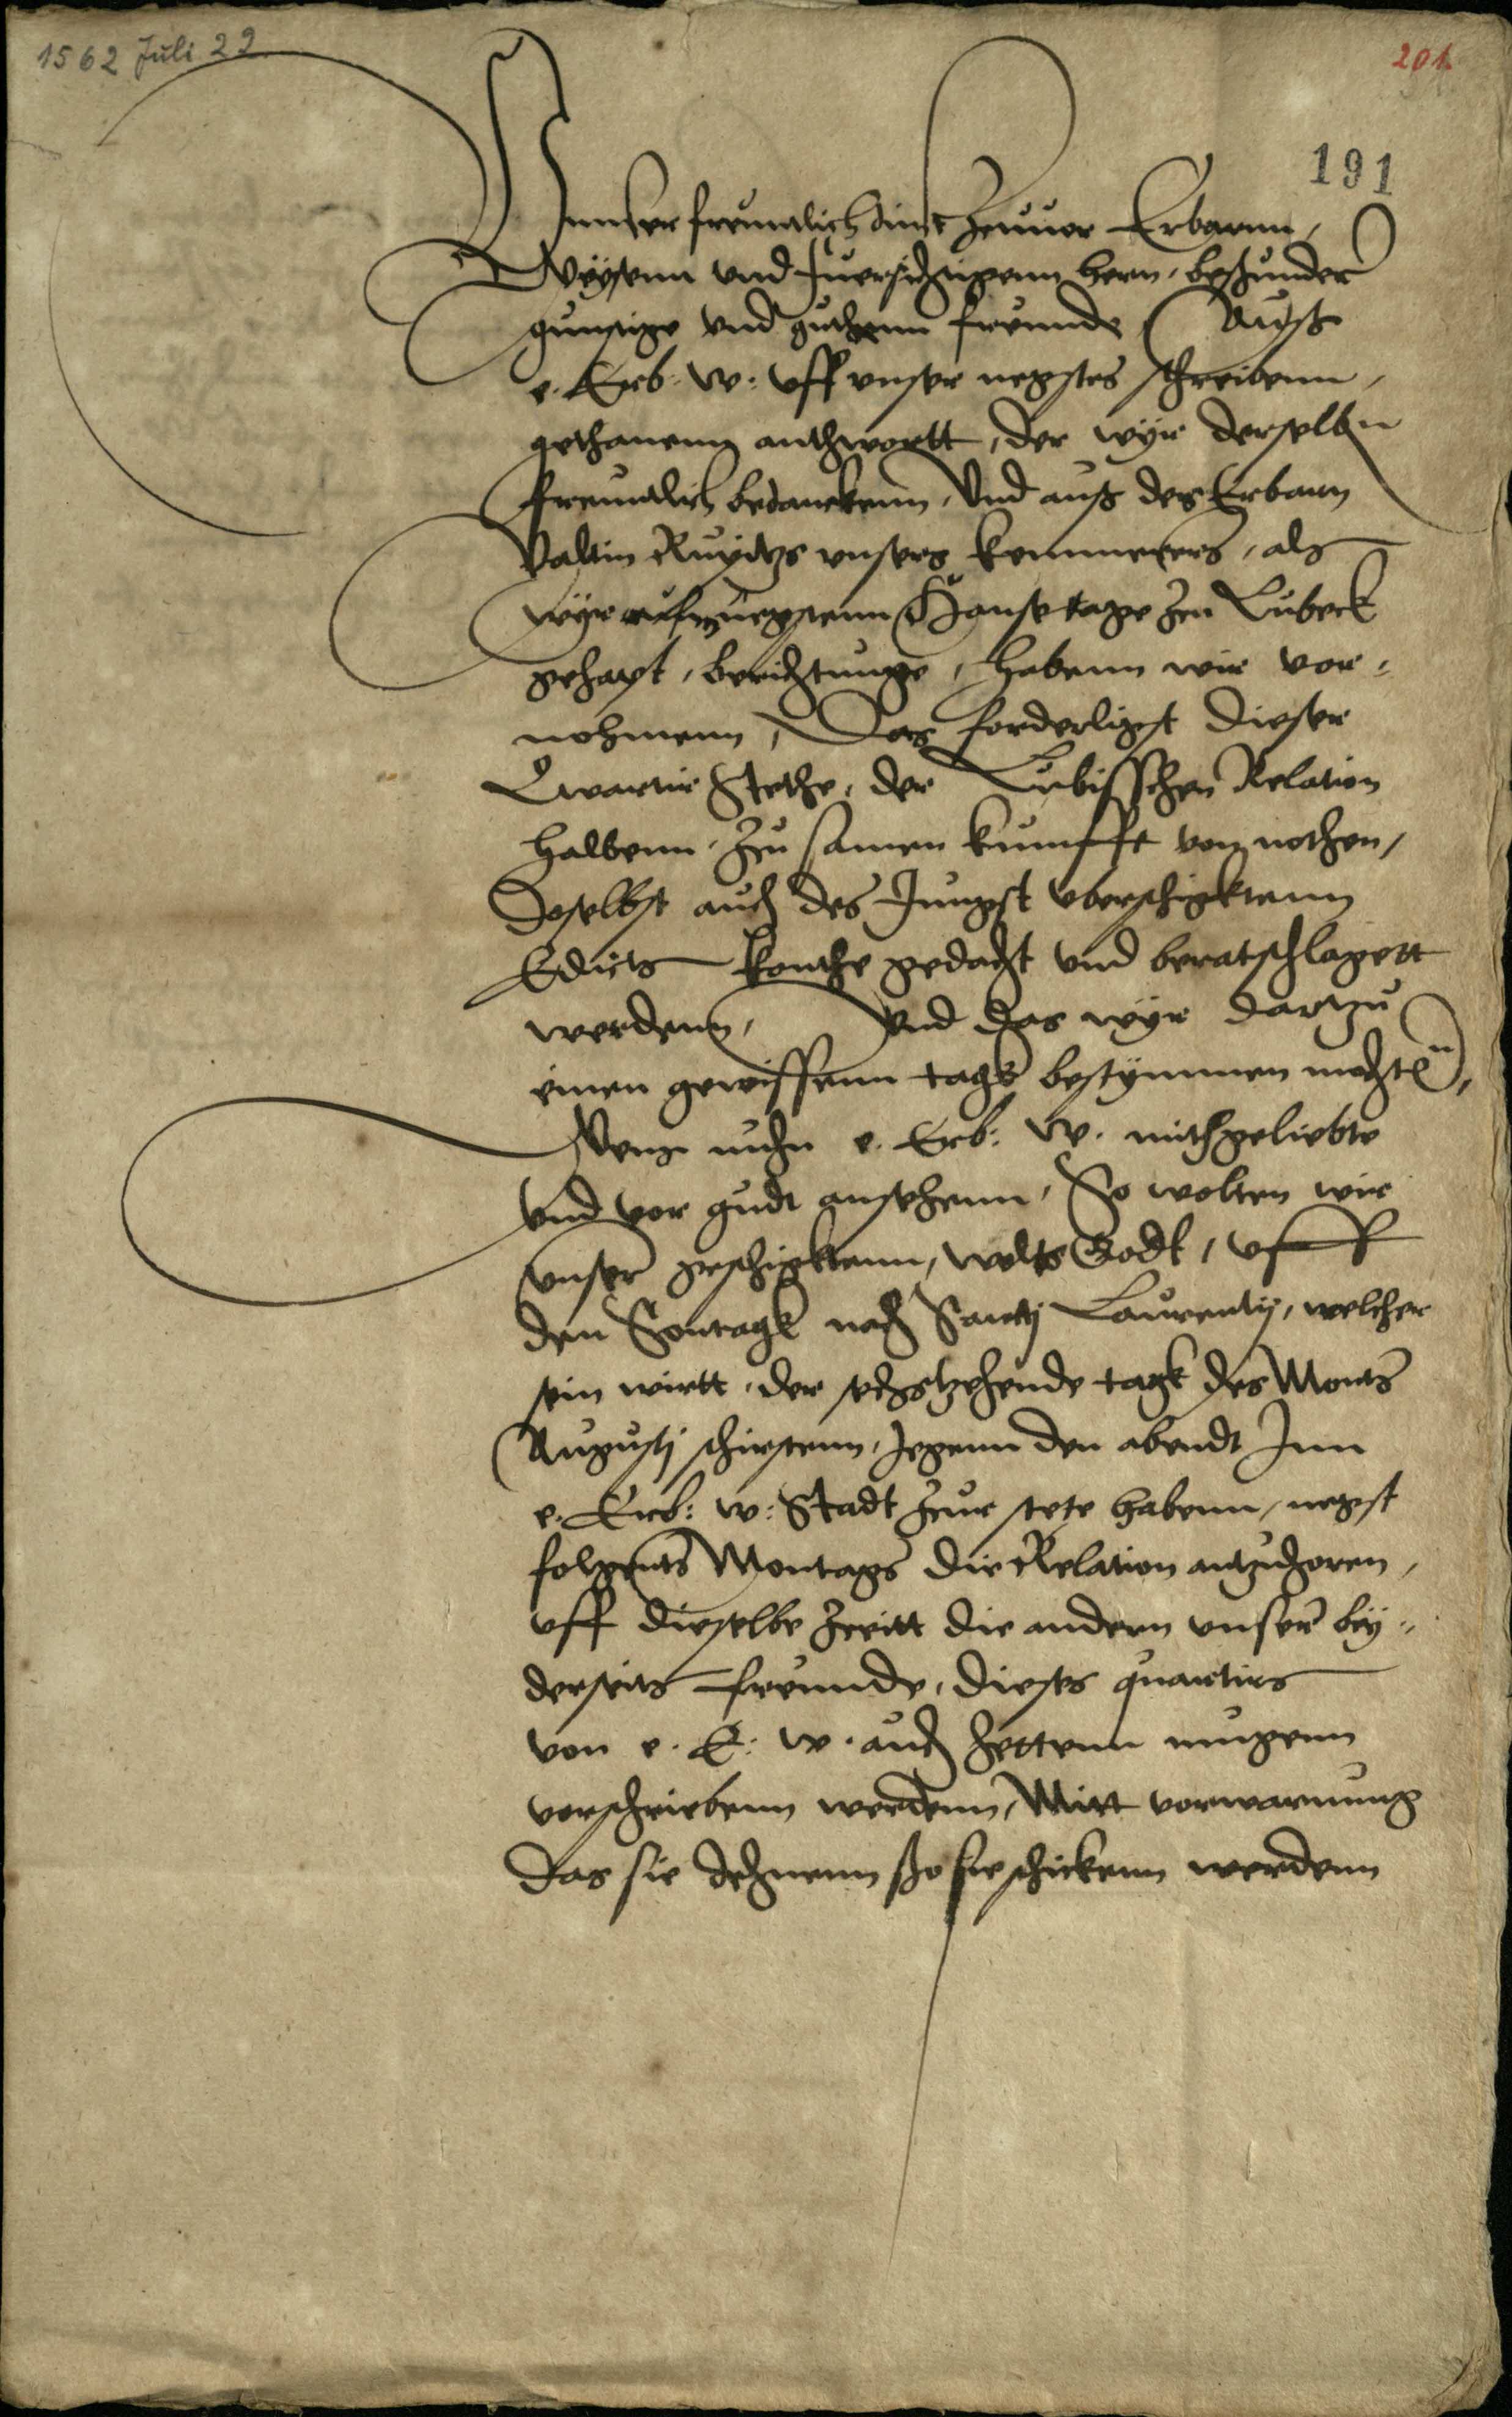 1562 Juli 22
201
191
Unnser freuntlich dinst zuuor Erbarnn,
Weysenn vnd fuersichtigenn hern, beßunder
gunstige vnd guthenn freunde, Auß
e. Erb: W: vff vnser negstes schreibenn,
gethanenn anthwortt, der wÿr derselbn
freuntlich bedanckenn, Vnd auß des Erbarn
Valtin vnsers kemmerers, als
wÿr negstenn Hansetage zu Lubeck
gehapt, berichtunge, habenn wir vor-
nohmenn, Das forderligst dieser
Quartir Stethe, der Lubisschen Relation
halbenn, zu samen kumfft von nothen,
Doselbst auch des Jungst vberschigktenn
Edicts konthe gedacht vnd beratschlagett
werdenn, Vnd das wÿr dartzu
einen gewissenn tagk bestÿmmen mechtenn,
Wens nuhn e. Erb: W. mithgeliebte
vnd vor gudt ansehenn, So wolten wir
vnser geschigktenn, wils Godt, vff
den Sontagk nach Sancti Laurentij, welcher
sein wirtt, der sechstzehende tagk des Monts
Augustj schirstenn, Jegenn den abendt Inn
e. Erb: W: Stadt zur stete habenn, negst
folgents Montags die Relation antzuhoren,
vff dieselbe Zeitt die andern vnsere beÿ-
derseits freunde, dieses quartirs
von e. E: W. auch hettenn mugenn
vorschriebenn werdenn, Mitt vorwarnung
das sie dehnenn ßo sie schickenn werdenn